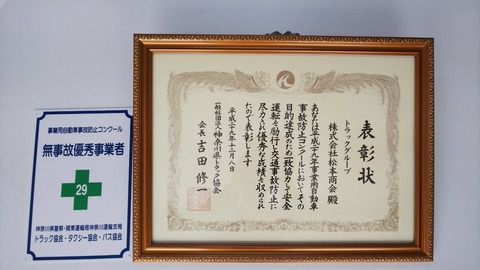 表彰状
トラックグループ
株式会社松本商会殿
あなたは平成二十九年事業用自動車
事故防止コンクールにおいてその
目的達成のため一致協力して安全
運転を励行し交通事故防止に
尽力され優秀な成績を収められ
たので表彰します
平成二十九年十二月八日
一般社団法人神奈川県トラック協会
会長 吉田 修一
事業用自動車事故防止コンクール
無事故優秀事業者
29
神奈川県警察・関東運輸局神奈川運輸支局
トラック協会・タクシー協会・バス協会